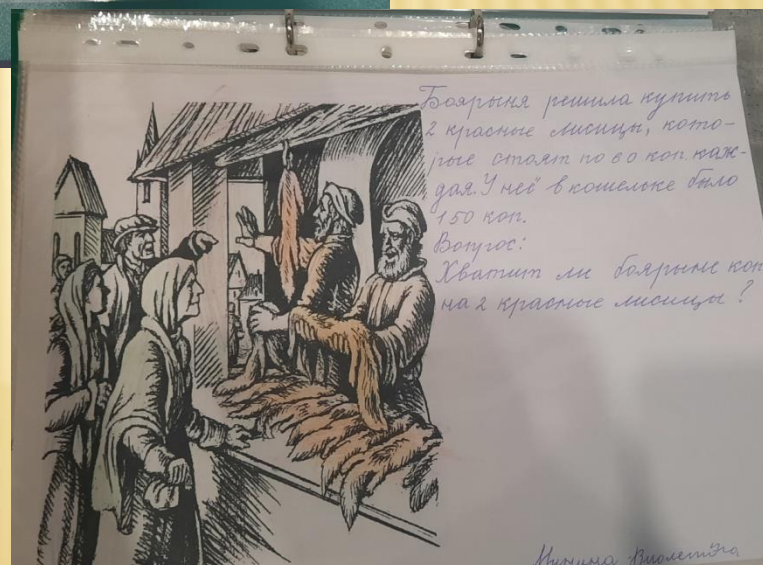 Боярыня решила купить
2 красные лисицы, кото-
рые стоят по 60 коп каж-
дая. У неё в кошельке было
150 коп.
Вопрос:
Хватит ли боярыне коп
на 2 красные лисицы?
Виолетта